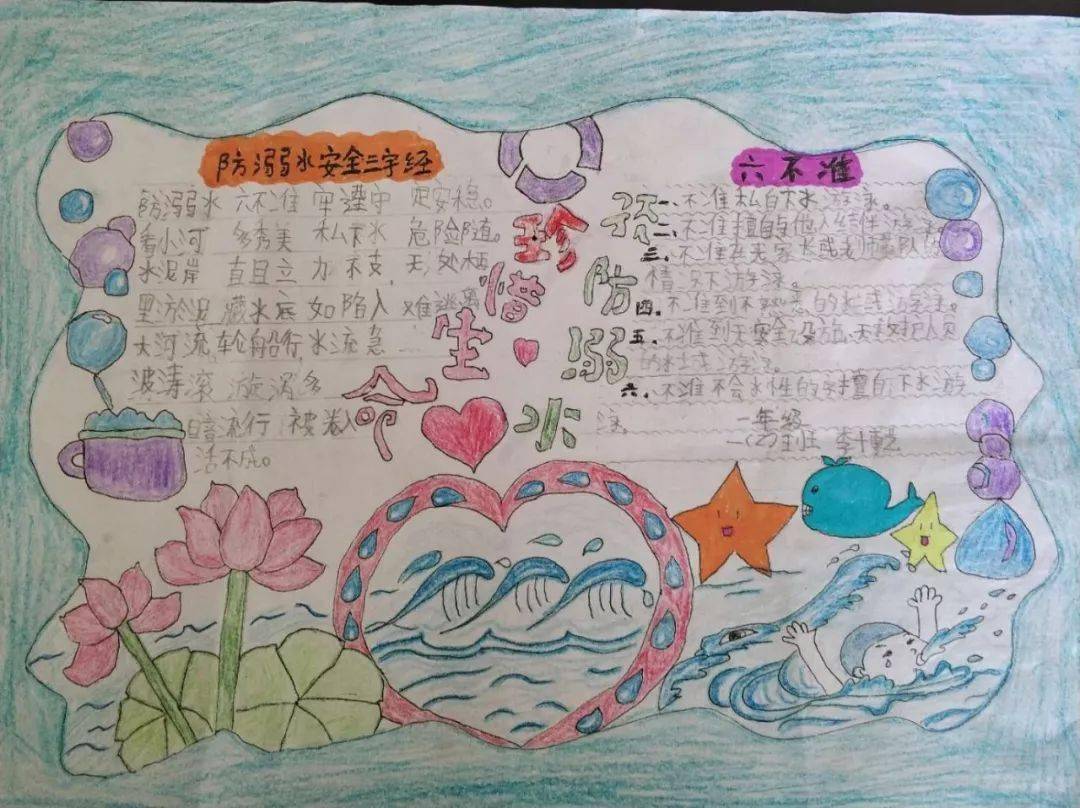 防溺水安全三字经
防溺水 六不准 牢遵守 定安稳。
看小河 多秀美 私下水 危险随。
水泥岸 直且立 力不支 无处栖
里淤泥 藏水底 如陷入 难逃离
大河流 轮船行 水流急
波涛滚 漩涡多
暗流行 被卷入
活不成。
珍惜生命
孩
防溺水
六不准
一、不准私自下水游泳。
二、不准擅自与他人结伴游泳。
三、不准在无家长或老师带队的
情况下游泳。
四、不准到不熟悉的水域游泳。
五、不准到无安全设施、无救护人员
的水域游泳。
六、不准不会水性的 擅自下水游
泳。
一年级
一(2)班 李